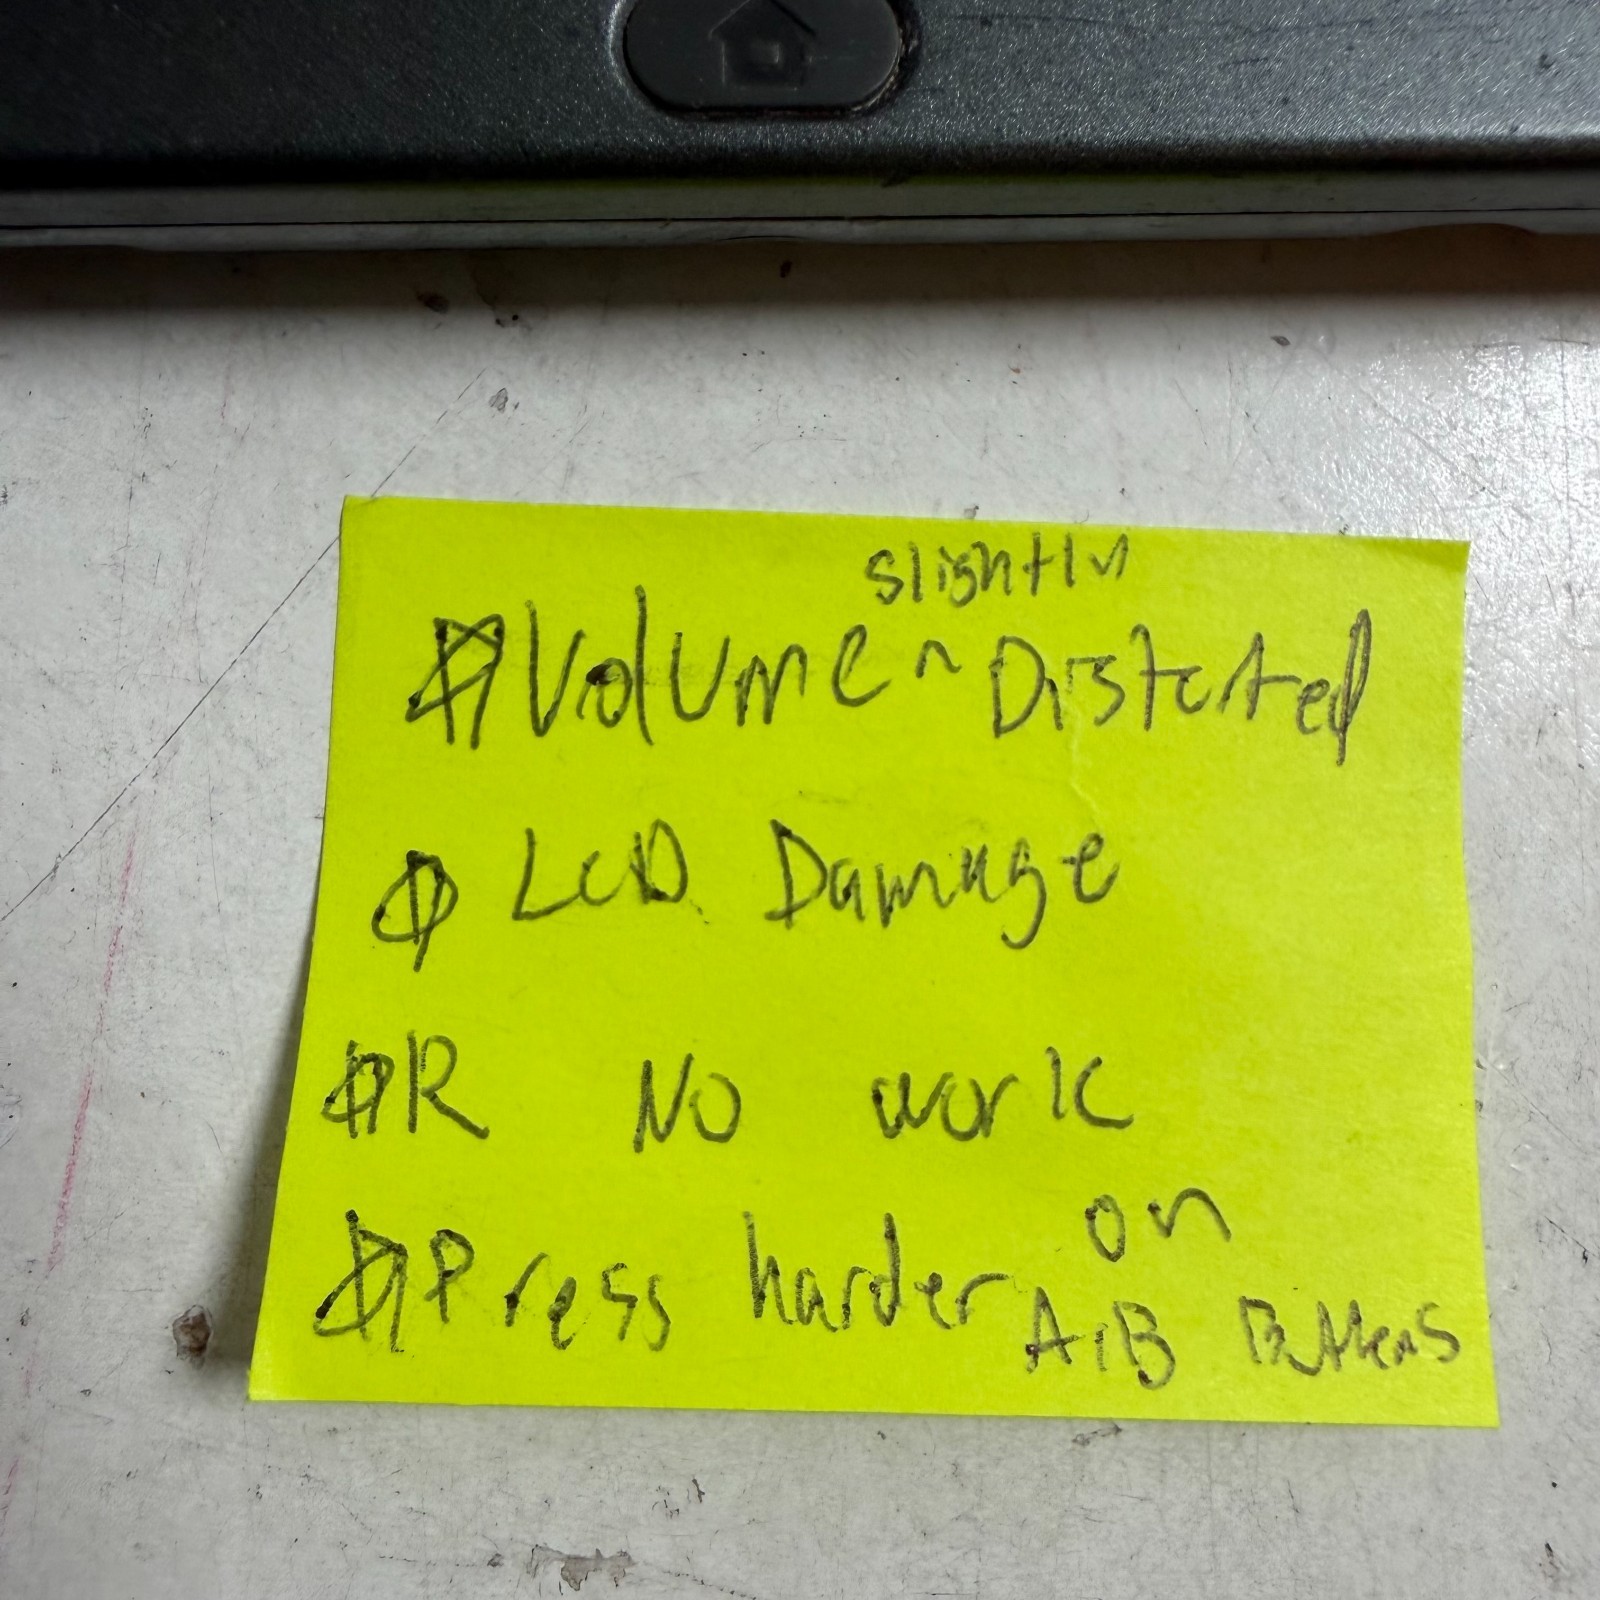 Volume ^ slightly Distorted
LCD Damage
R No work
Press harder on A/B Buttons